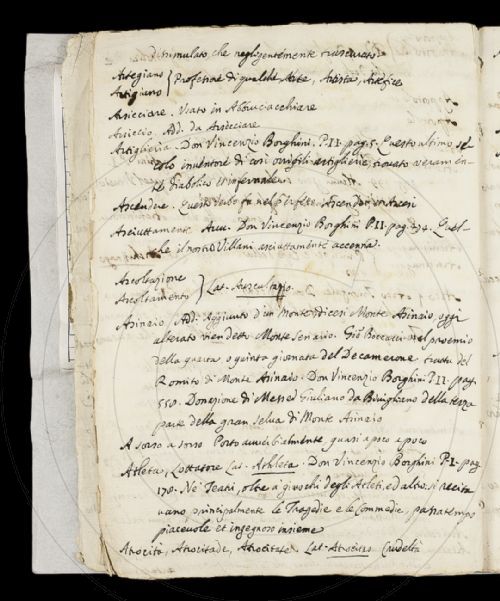 dissimulato, che negligentemente riverirsi.
Artegiano } Professore di qualche Arte, Artista, Artefice
Artigiano
Arsicciare. Usato in Abbruciacchiare
Arsiccio. Add. da Arsicciare
Artiglieria. Don Vincenzio Borghini. P. II. pag. 5. Questo ultimo se-
colo inventore di così orribili artiglierie, trovato veramen-
te diabolico et infernale.
Ascendere. Questo verbo fa nel
Asciuttamente Avv. Don Vincenzio Borghini P. II. pag. 274. Quel-
che il nostro Villani asciuttamente accenna.
Ascoltazione } Lat. Auscultatio.
Ascoltamento
Asinaio Add. Aggiunto d'un Monte dicesi Monte Asinaio, oggi
alterato vien detto Monte Senario. Gio. Boccacci nel proemio
della quarta o quinta giornata del Decamerone tratta del
Romito di Monte Asinaio. Don Vincenzio Borghini P. II. pag.
550. Donazione di Messer Giuliano da Bivigliano della terza
parte della gran selva di Monte Asinaio
A sorso a sorso Posto avverbialmente quasi a poco a poco
Atleta, Lottatore Lat. Athleta. Don Vincenzio Borghini P. I. pag.
170. Ne' Teatri, oltre a giuochi degli Atleti, ed altro, si recita
vano principalmente le Tragedie e le Commedie, passatempo
piacevole et ingegnoso insieme
Atrocità, Atrocitade, Atrocitate. Lat. Atrocitas. Crudeltà